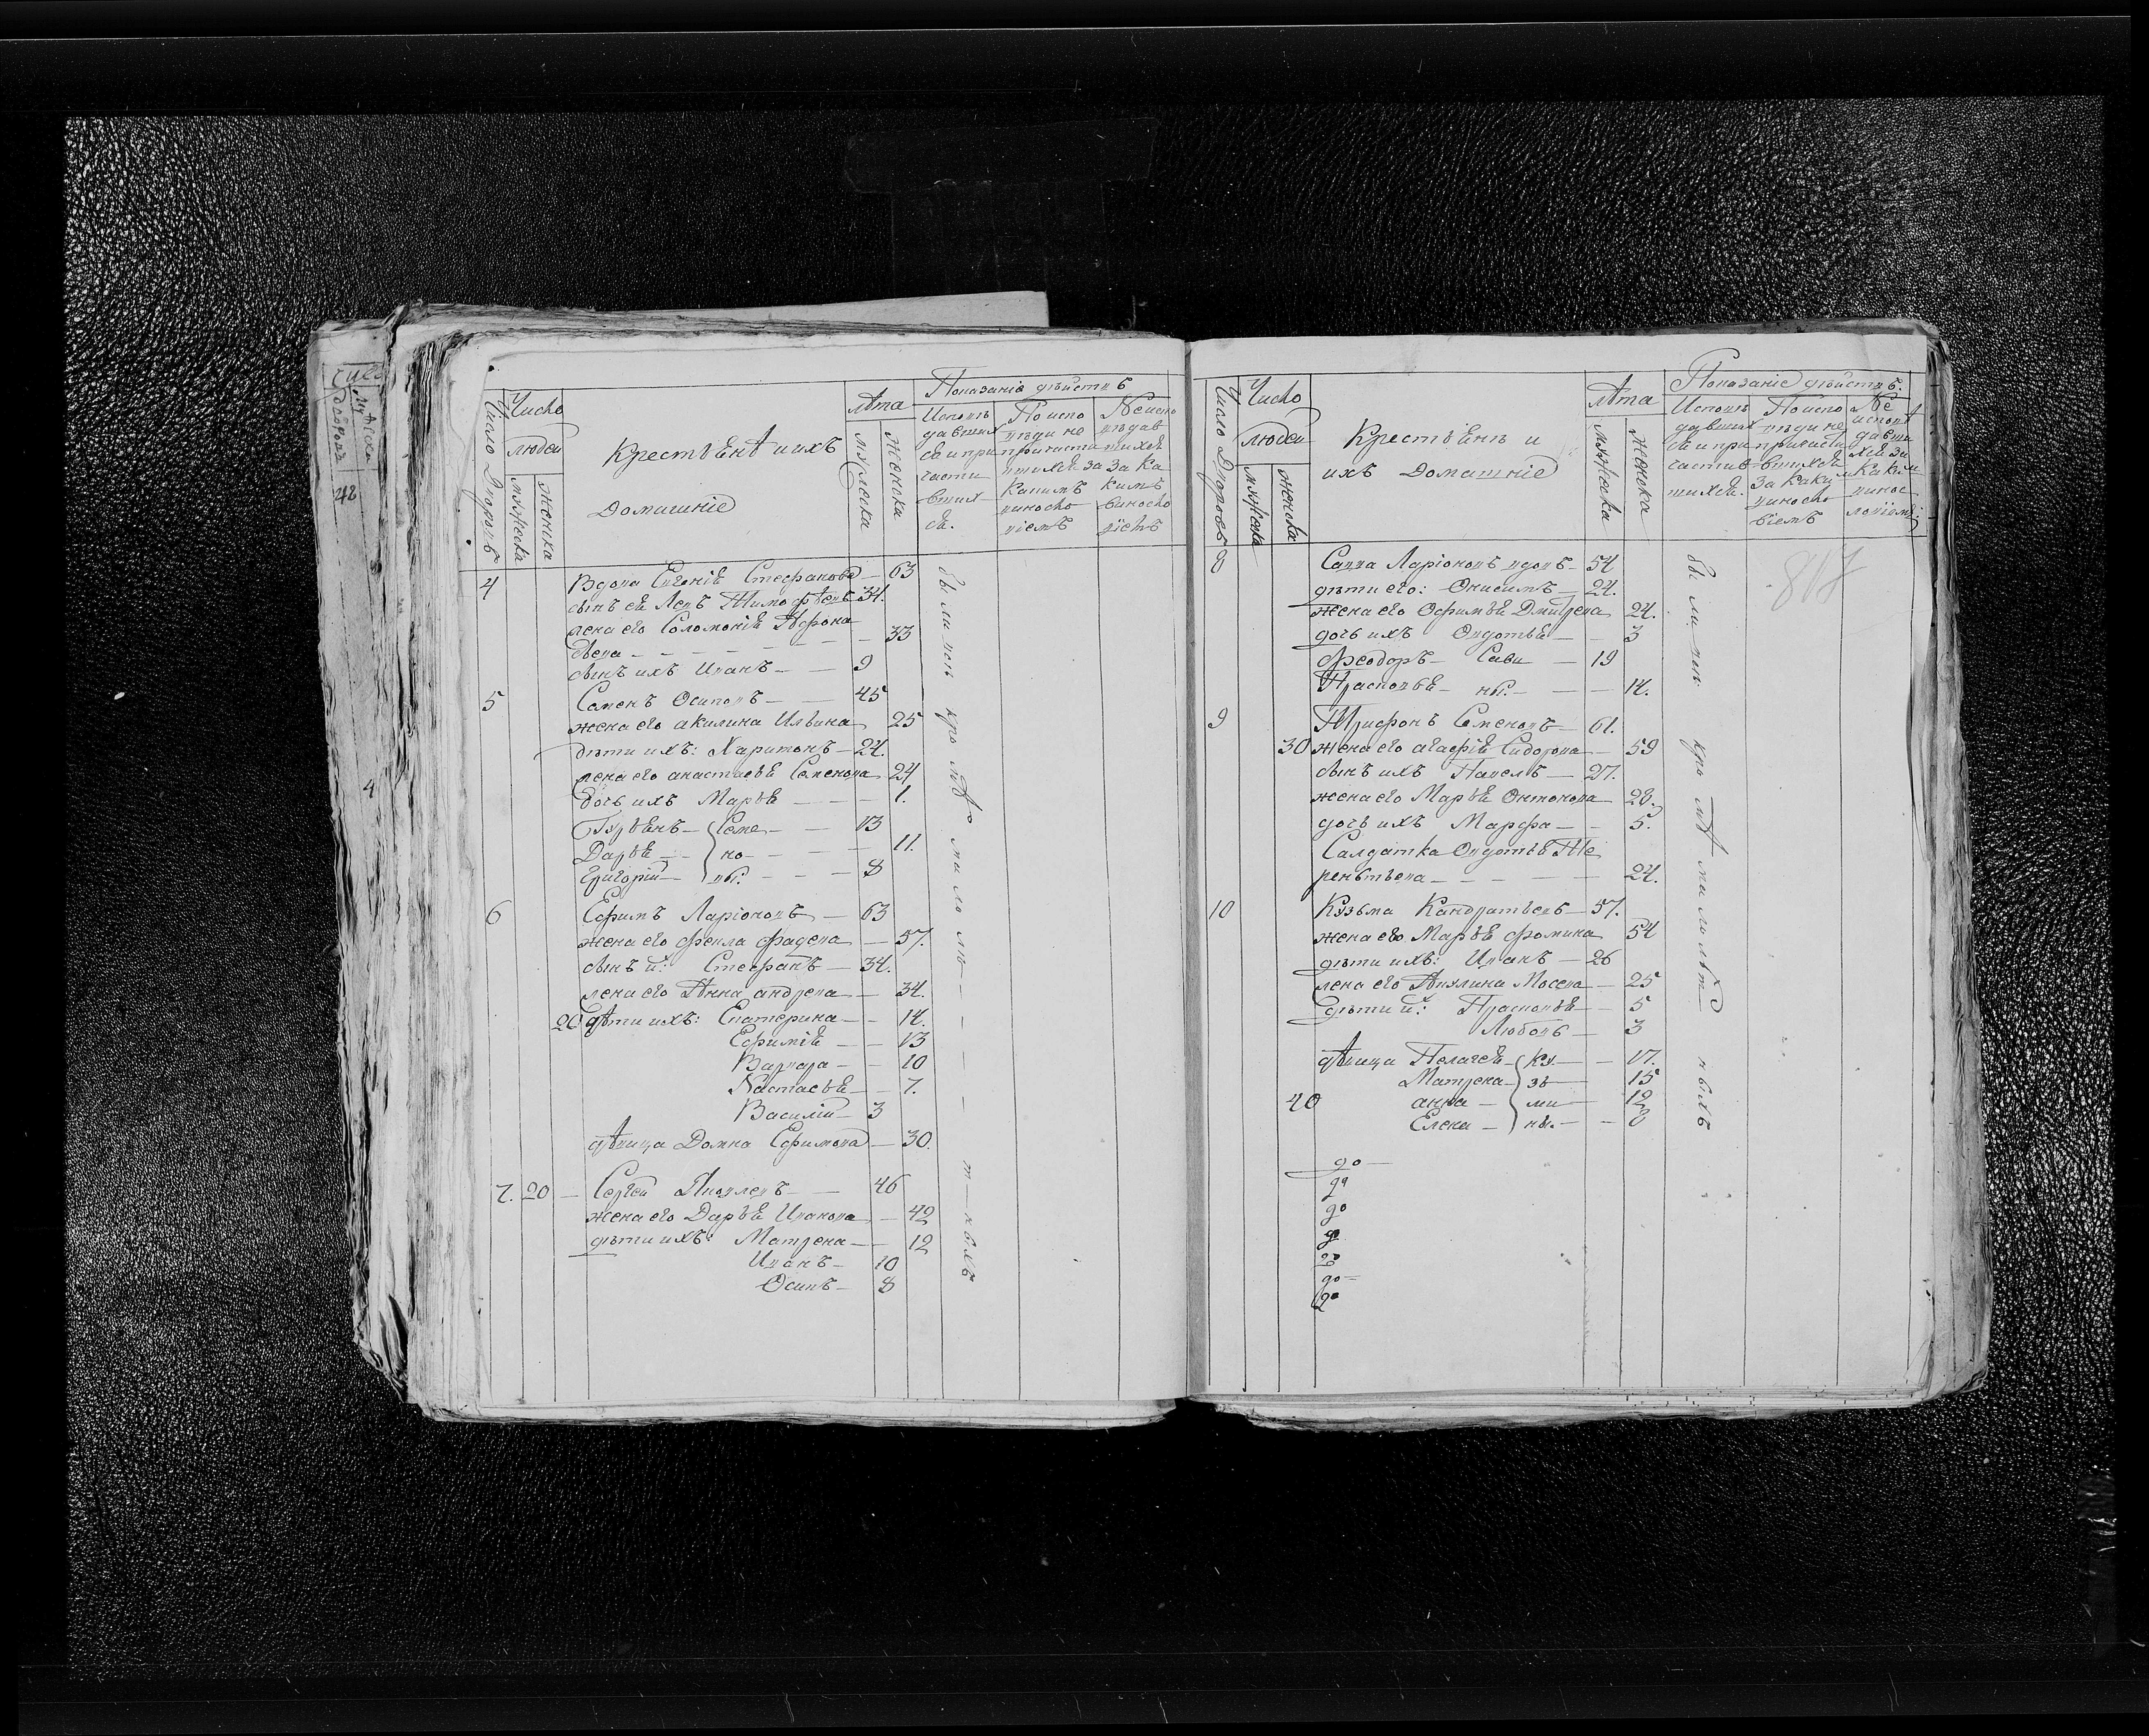 Число Дворовъ
Число
людей
мужеска
женска
Крестьянъ и ихъ
Домашніе
лѣта
мужеска
женска
Показаніе дѣйствъ
Исповѣ
давших
ся и при
части
вших
ся.
По испо
вѣди не
причасти
вшихся за
какимъ
виносло
віемъ
Не испо
вѣдав
шихся
за ка
кимъ
виносло
віемъ
4 Вдова Евгенія Стефанова — 63
сынъ ея Левъ Тимофѣевъ 34.
жена его Соломонія Афона
сьева — 33
сынъ ихъ Иванъ — 9
5 Семенъ Осиповъ — 45
жена его акилина Ильина 25
дѣти ихъ: Харитонъ — 24.
жена его анастасья Семенова 24
дочь ихъ Марья — 1.
Гурьянъ — Семе — 13
Дарья — но — 11.
Григорій — вы: — 8
6 Ефимъ Ларіоновъ — 63
жена его фекла фадева — 57.
сынъ и: Стефанъ — 34.
жена его Анна андрева — 34.
20 дѣти ихъ: Екатерина — 14.
Ефимія — 13
Варвара — 10
Настасья — 7.
Василій — 3
дѣвица Домна Ефимова — 30.
7. 20 — Сергей Яковлевъ — 46
жена его Дарья Иванова — 42
дѣти ихъ: Матрена — 12
Иванъ — 10
Осипъ — 8
Число Дворовъ
Число
людей
мужеска
женска
Крестьянъ и
ихъ Домашніе
лѣта
мужеска
женска
Показаніе дѣйствъ.
Исповѣ
давших
ся и при
частив
шихся.
По испо
вѣди не
причасти
вшихся
за каки
виносло
віемъ
Не
исповѣ
давши
хся за
какимъ
винос
ловіемъ
8 Савва Ларіоновъ вдовъ — 54
дѣти его: Онисимъ — 24.
жена его Офимья Дмитрева 24.
дочь ихъ Овдотья — 3
Феодоръ — Сави — 19
Прасковья — ны. — 14.
817
9 Трифонъ Семеновъ — 61.
30 жена его агафія Сидорова — 59
сынъ ихъ Павелъ — 27.
жена его Марья Онтонова 28.
дочь ихъ Марфа — 5.
Салдатка Овдотья Те
рентьева — 24.
10 Кузьма Кандратьевъ — 57.
жена его Марья фомина 54
дѣти ихъ: Иванъ — 26
жена его Акулина Мосева — 25
дѣти и: Прасковья — 5
Любовь — 3
дѣвица Пелагея — Ку — 17.
Матрена — зь — 15
40 анна — ми — 12
Елена — ны. — 8
до
до
до
до
до
до
до